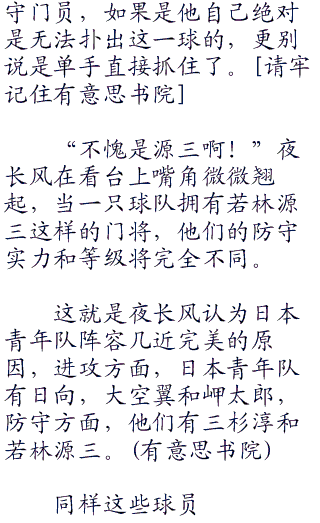 守门员，如果是他自己绝对
是无法扑出这一球的，更别
说是单手直接抓住了。[请牢
记住有意思书院]
“不愧是源三啊！”夜
长风在看台上嘴角微微翘
起，当一只球队拥有若林源
三这样的门将，他们的防守
实力和等级将完全不同。
这就是夜长风认为日本
青年队阵容几近完美的原
因，进攻方面，日本青年队
有日向，大空翼和岬太郎，
防守方面，他们有三杉淳和
若林源三。(有意思书院)
同样这些球员